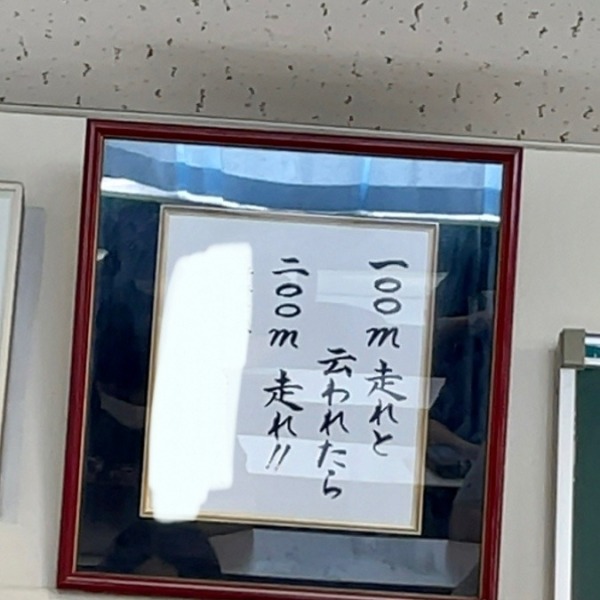 一〇〇m走れと
云われたら
二〇〇m走れ!!